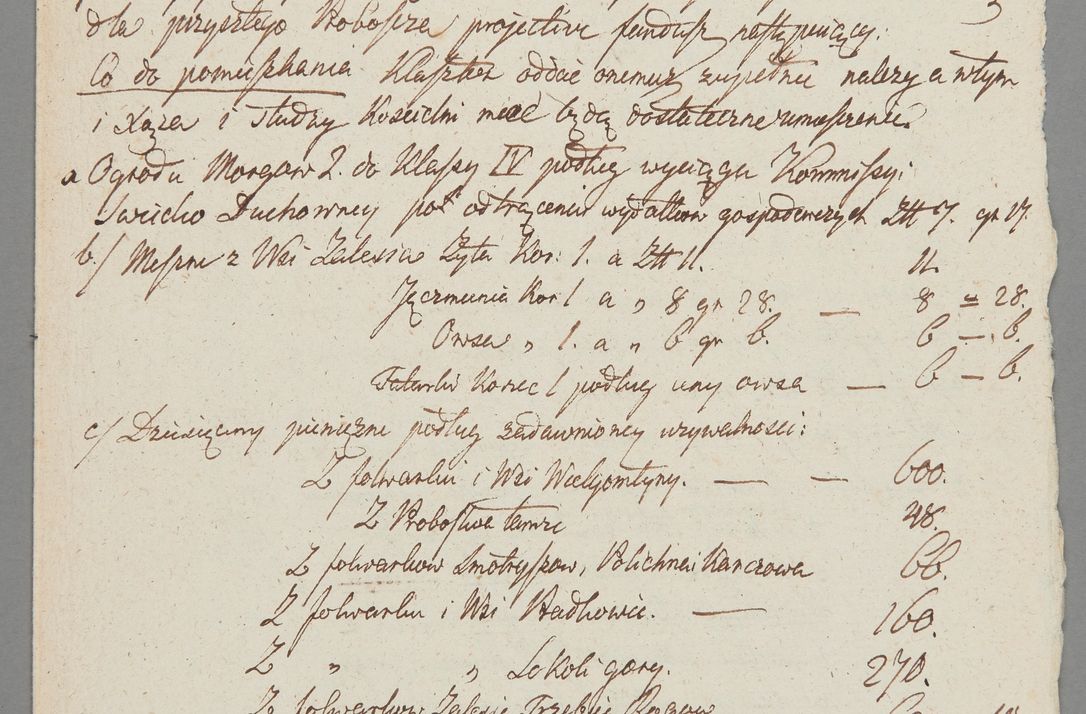 dla przyszłego Proboszcza projective fundusz następuiący:
Co do pomieszkania Klasztor oddać onemuż zupełnie należy a wtym
i Xięża i słudzy Kościelni mieć będą dostateczne umieszczenie
a Ogrodu Morgow 2. do Klassy IV podług wyciągu Kommissyi
Swiecko Duchowney po odtrąceniu wydatkow gospodarczych Złł 7. gr 17.
b./ Meszne z Wsi Zalesia Żyta Kor: 1. a Złł 11. 11.
Jęczmienia Kor 1 a „ 8 gr 28. — 8 = 28.
Owsa „ 1. a „ 6 gr 6. 6 — 6.
Tatarki Korzec 1 podług ceny owsa — 6 — 6.
c/ Dziesięciny pieniężne podług zadawnioney używalności:
Z folwarku i Wsi Wielgomłyny. — — 600.
Z Probostwa tamże 48.
Z folwarkow Smotryszow, Polichna i Karczowa 66.
Z folwarku i Wsi Radkowic. — 160.
Z „ „ Sokoli gory. 270.
Z folwarkow Zalesie Trzebce